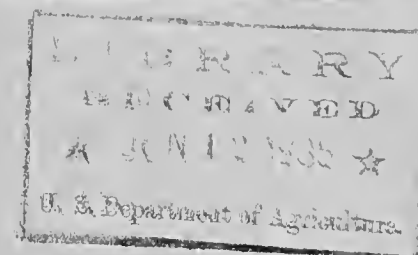 LIBRARY
RECEIVED
★ JUN 1 ★
U. S. Department of Agriculture.